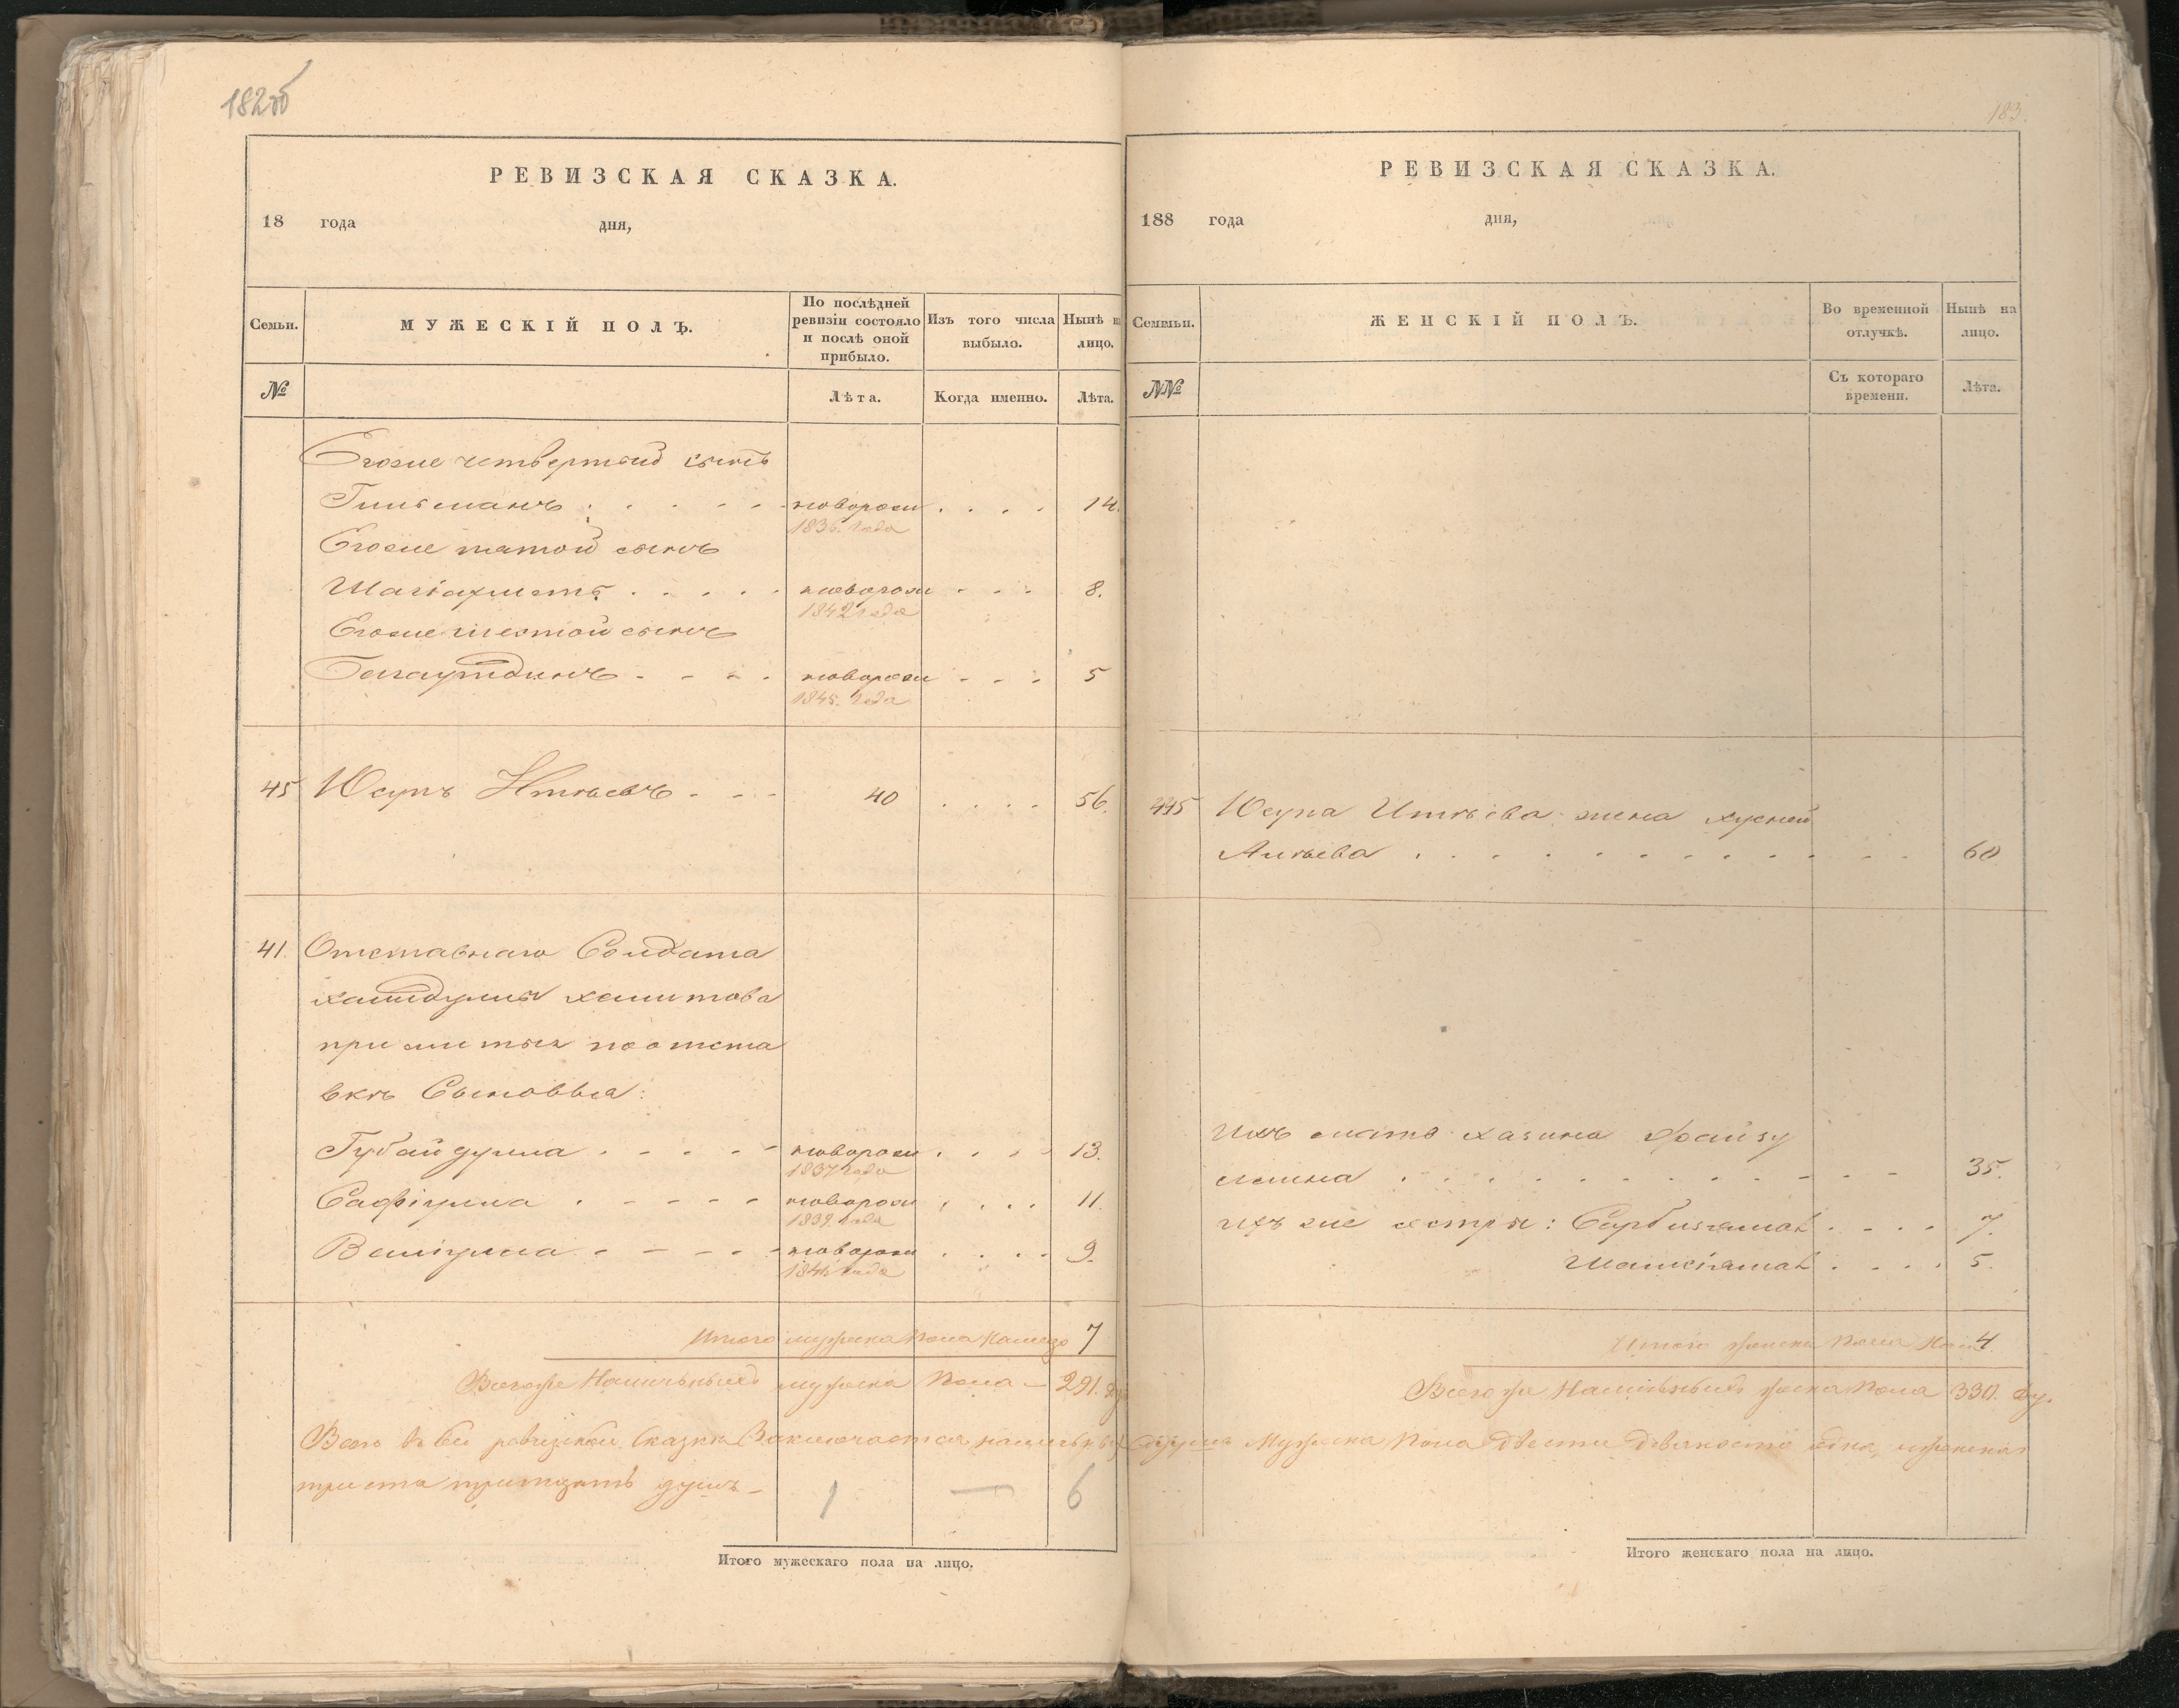 182об
РЕВИЗСКАЯ СКАЗКА.
18 года дня,
Семьи.
МУЖЕСКІЙ ПОЛЪ.
По послѣдней ревизіи состояло и послѣ оной прибыло.
Изъ того числа выбыло.
Нынѣ на лицо.
№
Лѣта.
Когда именно.
Лѣта.
Егоже четвертый сынъ
новорож 14.
1836. года
Егоже пятой сынъ
Шагіахметъ новорож 8.
1842 года
Егоже шестой сынъ
Багаутдинъ новорож 5
1845. года
45 Юсупъ Итѣевъ 40 56.
41. Отставнаго Солдата
Хамидуллы Хамитова
прижитыя по отста
вкѣ Сыновья:
Губайдулла новорож 13.
1837 года
Сафіулла новорож 11.
1839. года
Валіулла новорож 9.
1841 года
Итого мужеска пола налицо 7
Всего же Наличныхъ мужеска пола — 291. ду
Всего въ сей ревизской Сказкѣ Заключается наличныхъ
триста тритцать душъ
1 — 6
Итого мужескаго пола на лицо.
183.
РЕВИЗСКАЯ СКАЗКА.
188 года дня,
Семьи.
ЖЕНСКІЙ ПОЛЪ.
Во временной отлучкѣ.
Нынѣ на лицо.
№№
Съ котораго времени.
Лѣта.
45 Юсупа Итѣева жена
60
Ихъ мать Хазина Файзу
лина 35.
ихъ же сестры: Сарбизямал 7.
Шамсіямал 5.
Итого женска пола Нали 4.
Всего же Наличныхъ женска пола 330. ду.
душъ Мужеска пола двести девяносто одна, и женска
Итого женскаго пола на лицо.